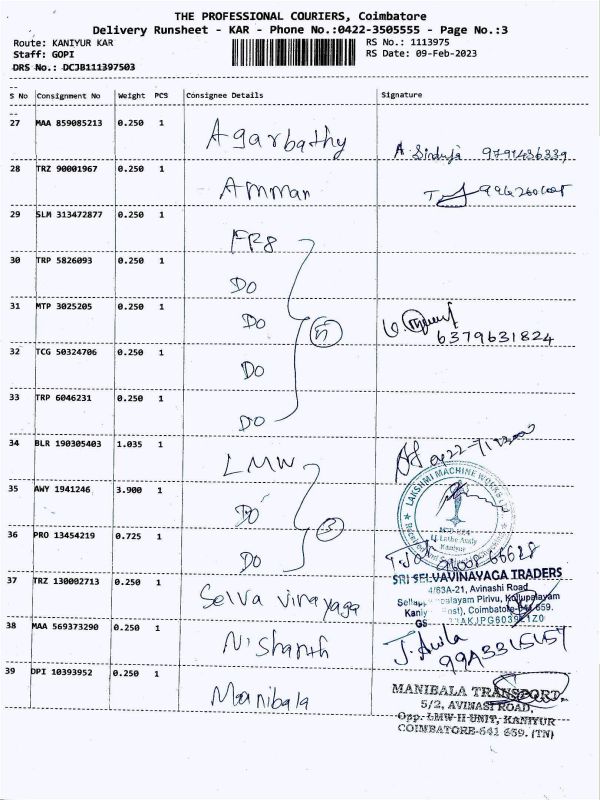 THE PROFESSIONAL COURIERS, Coimbatore
Delivery Runsheet - KAR - Phone No.:0422-3505555 - Page No.:3
Route: KANIYUR KAR
RS No.: 1113975
Staff: GOPI
RS Date: 09-Feb-2023
DRS No.: DCJB111397503
S No Consignment No Weight PCS Consignee Details Signature
27 MAA 859085213 0.250 1 Agarbathy
A. Sinduja 9791436339
28 TRZ 90001967 0.250 1 Amman
29 SLM 313472877 0.250 1 FR8
30 TRP 5826093 0.250 1 DO
31 MTP 3025205 0.250 1 DO
6379631824
32 TCG 50324706 0.250 1 DO
33 TRP 6046231 0.250 1 DO
34 BLR 190305403 1.035 1 LMW
LAKSHMI MACHINE WORKS LTD
35 AWY 1941246 3.900 1 DO
Kaniyur
36 PRO 13454219 0.725 1 DO
37 TRZ 130002713 0.250 1 Selva vinayaga
SRI SELVAVINAYAGA TRADERS
4/63A-21, Avinashi Road
Pirivu, Kollupalayam
Coimbatore-641 659.
38 MAA 569373290 0.250 1 Nishanth
39 DPI 10393952 0.250 1 Manibala
MANIBALA TRANSPORT
5/2, AVINASI ROAD,
Opp. LMW II UNIT, KANIYUR
COIMBATORE-641 659. (TN)